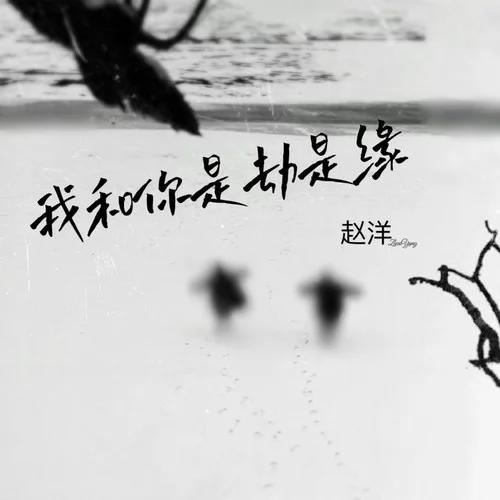 我和你是劫是缘
赵洋
ZhaoYang